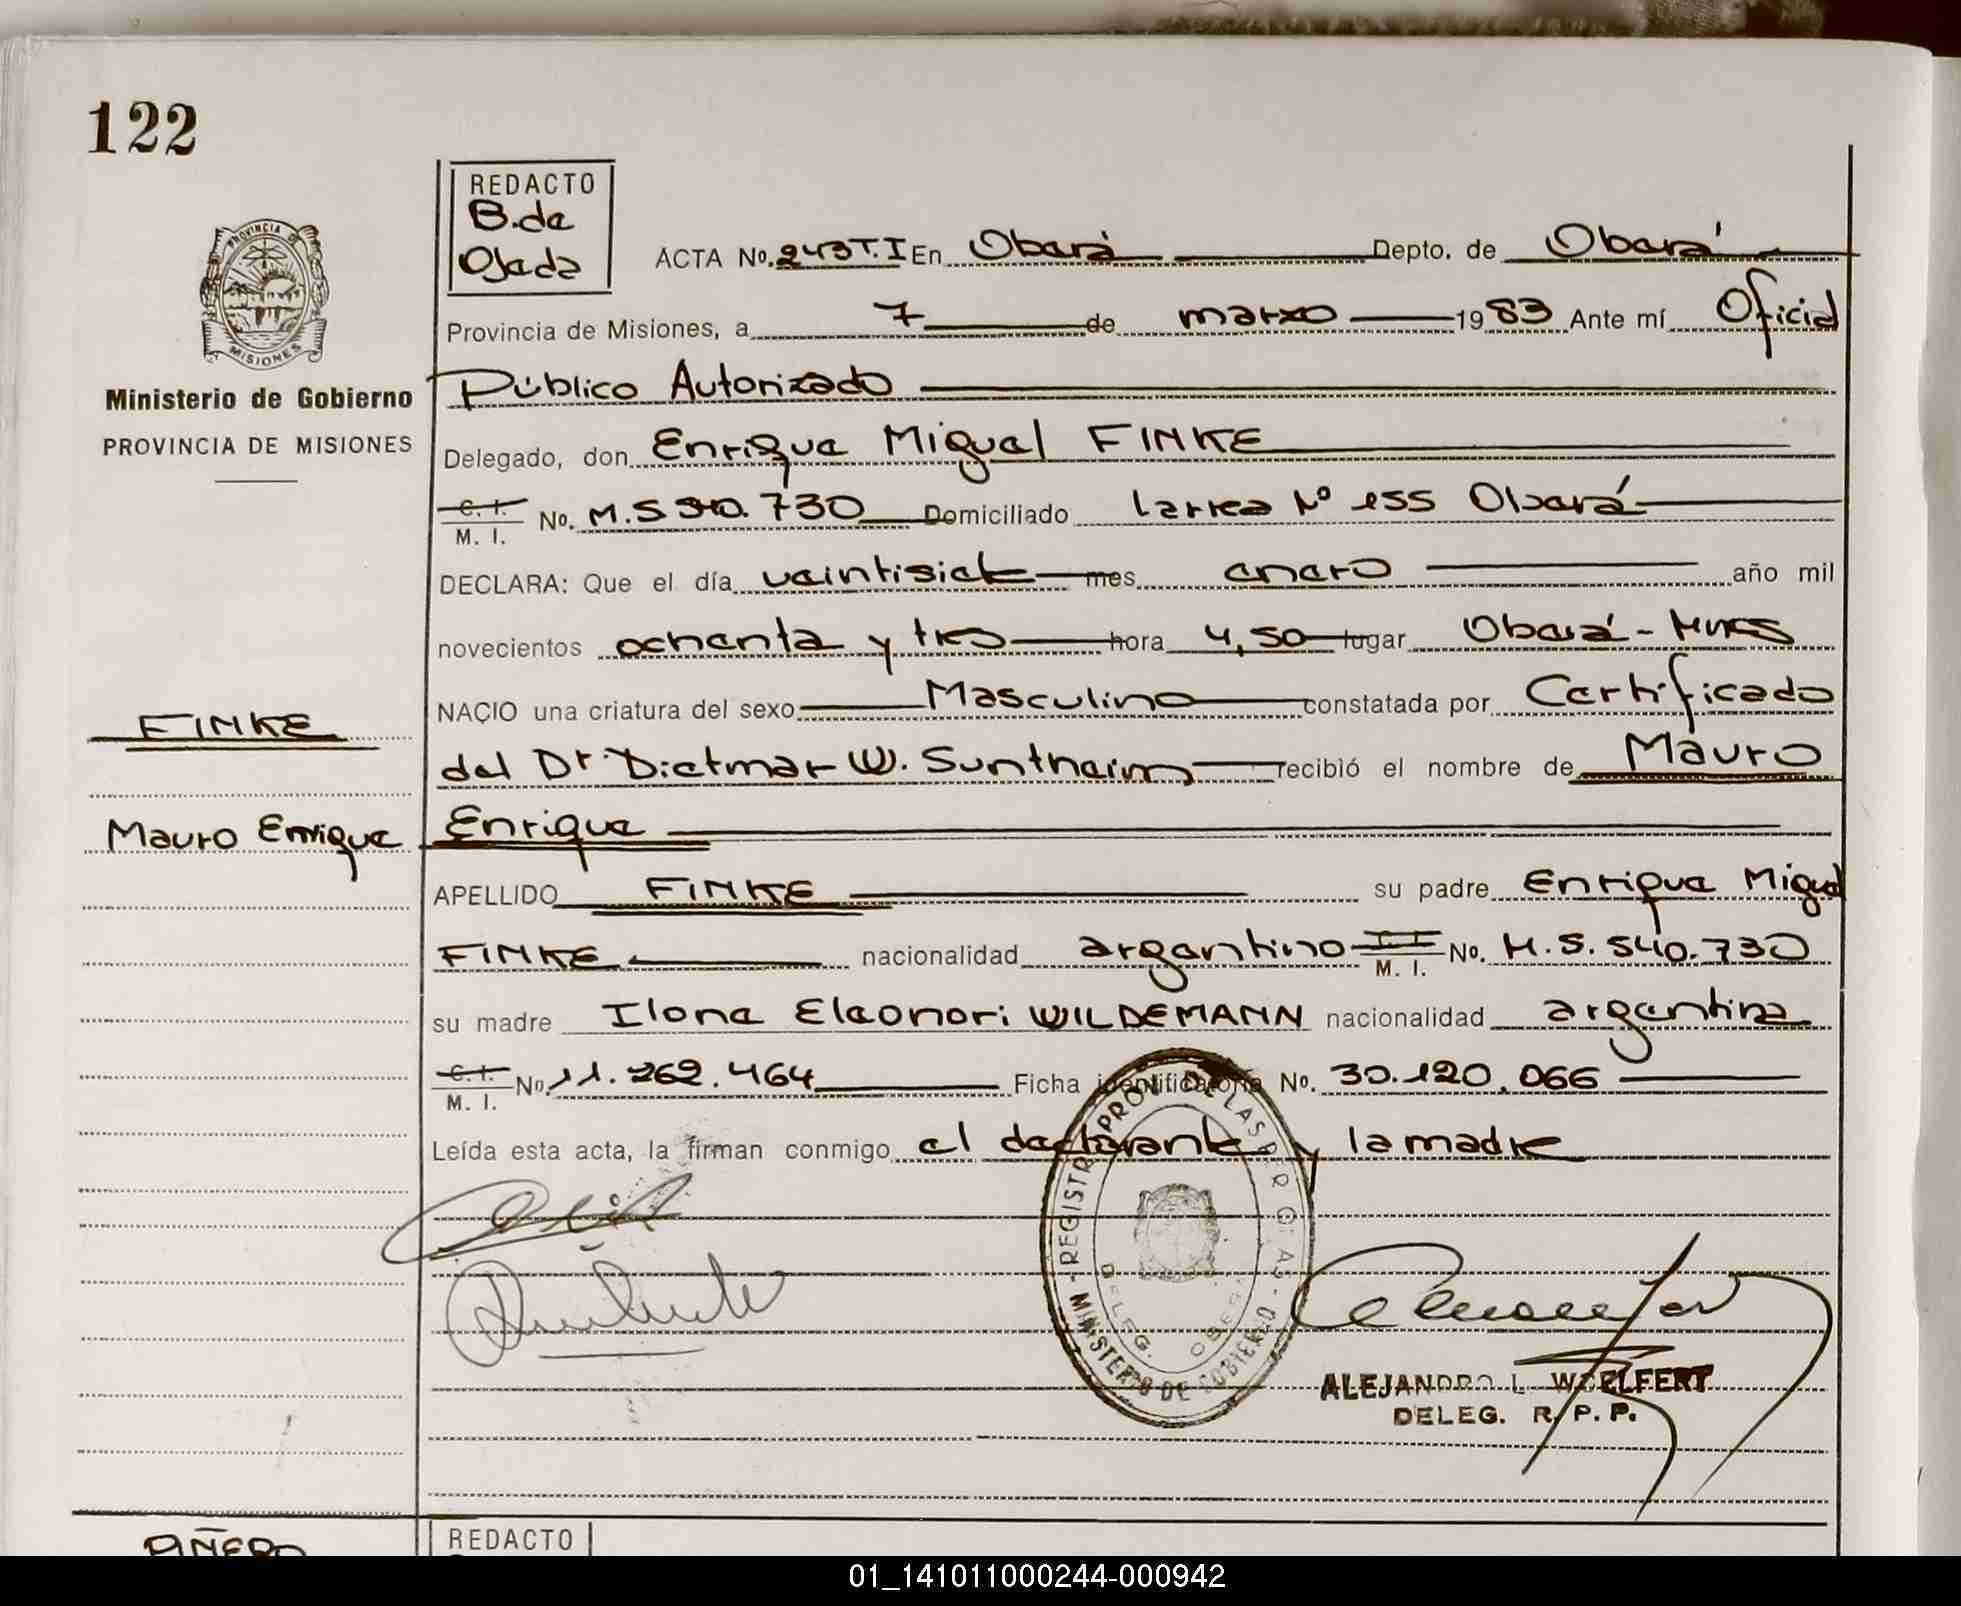 122
REDACTO
B. de
Ojeda
ACTA No. 243 T.I En Oberá Depto. de Oberá
Provincia de Misiones, a 7 de marzo 1983 Ante mí Oficial
Público Autorizado
PROVINCIA DE MISIONES
Ministerio de Gobierno
PROVINCIA DE MISIONES
Delegado, don Enrique Miguel FINKE
C. I.
M. I.
No. M.5.540.730 Domiciliado Larrea Nº 155 Oberá
DECLARA: Que el día veintisiete mes enero año mil
novecientos ochenta y tres hora 4,50 lugar Oberá - Mnes
NACIO una criatura del sexo Masculino constatada por Certificado
FINKE
del Dr. Dietmar W. Suntheim recibió el nombre de Mauro
Mauro Enrique
Enrique
APELLIDO FINKE su padre Enrique Miguel
FINKE nacionalidad argentino C. I.
M. I.
No. M.5.540.730
su madre Ilona Eleonori WILDEMANN nacionalidad argentina
C. I.
M. I.
No. 11.262.464 Ficha identificatoria No. 30.120.066
Leída esta acta, la firman conmigo el declarante y la madre
REGISTRO PROV. DE LAS PER
MINISTERIO DE GOBIERNO
DELEG. OBERA
ALEJANDRO L. WOELFERT
DELEG. R. P. P.
PIÑERO
REDACTO
01_141011000244-000942